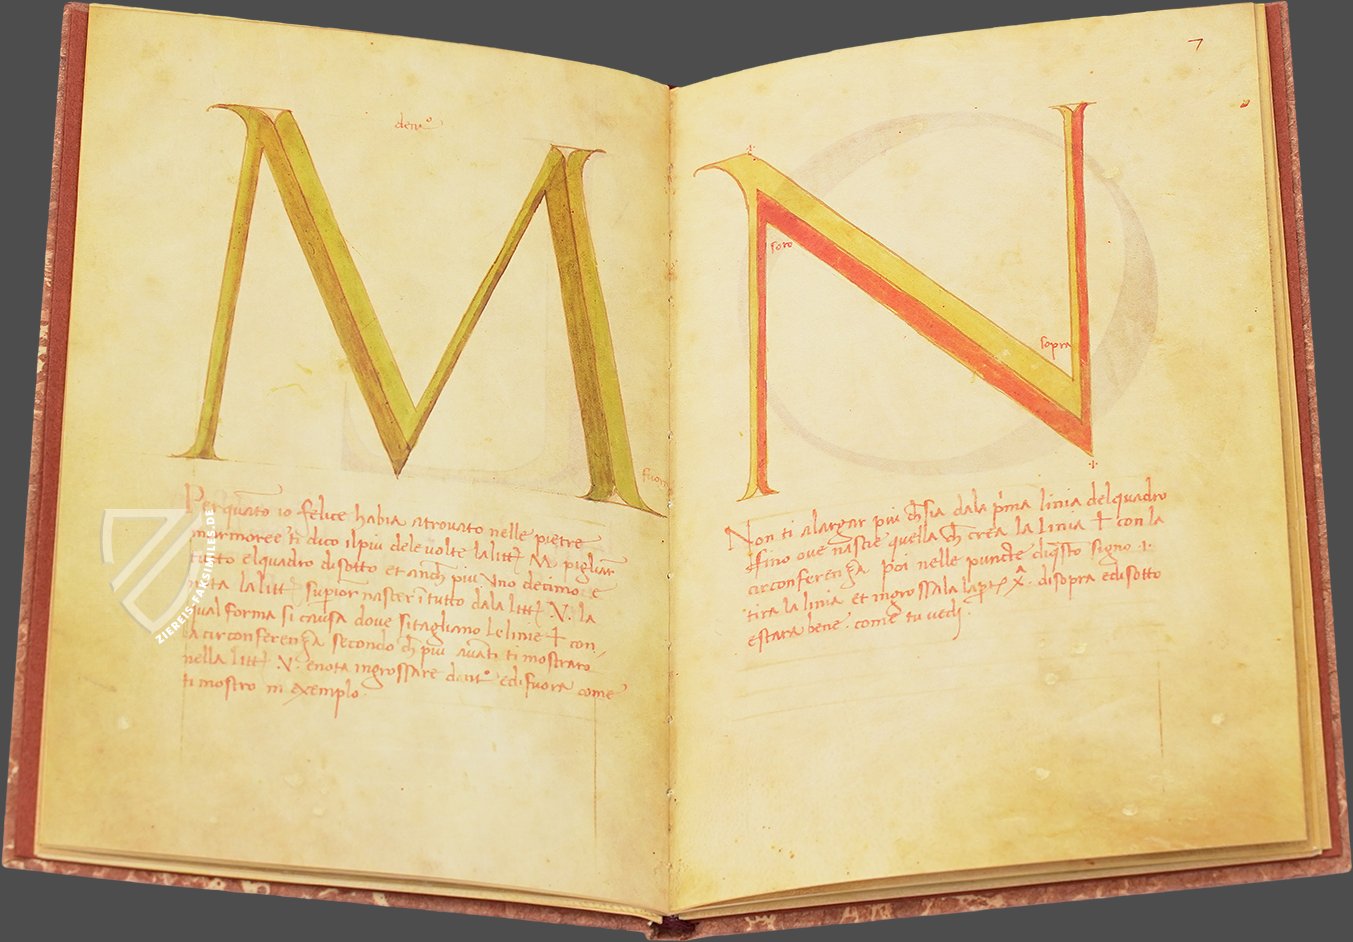 M
dent°
fuora
Per quāto io felice habia atrovato nelle pietre
marmoree ti dico il più dele volte la litt. M pigliar
tutto el quadro di sotto et anch più uno decimo e
nota la litt. superior nascer ī tutto dala litt. V. la
qual forma si causa dove si tagliano le linie + con
la circonferenza secondo ch più avāti ti mostraro
nella litt. N. enota ingrossare dent° edi fuora come
ti mostro in exemplo.
7
N
+
foro
sopra
+
Non ti alargar più ch sia dala p'ma linia del quadro
ffino ove nascie quella ch crea la linia + con la
circonferenza poi nelle puncte di questo signo +
tira la linia et ingrossala di sopra edi sotto
e stara bene. come tu vedi
ZIEREIS-FAKSIMILE.DE